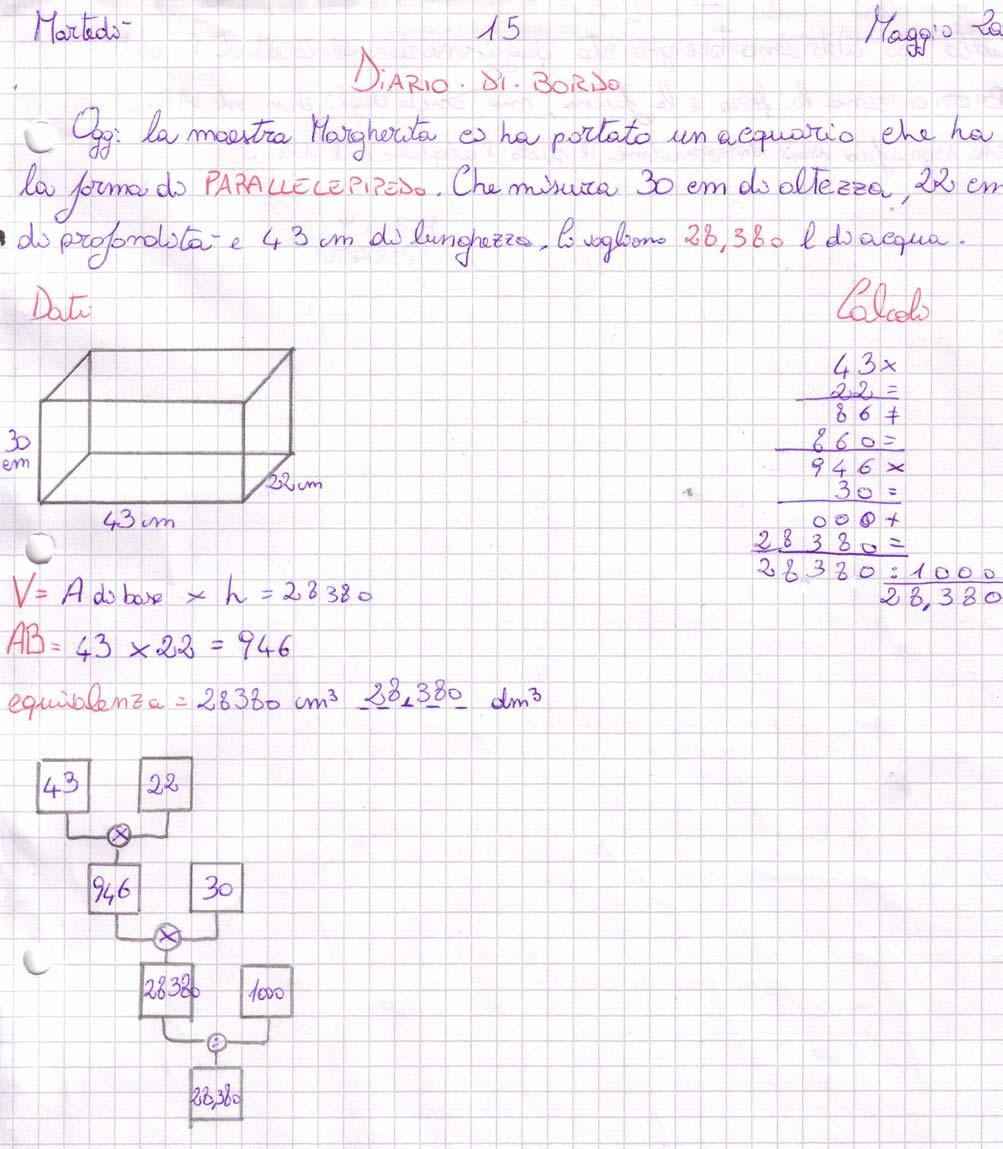 Martedì 15 Maggio 20
DIARIO. DI. BORDO
Oggi la maestra Margherita ci ha portato un acquario che ha
la forma di PARALLELEPIPEDO. Che misura 30 cm di altezza, 22 cm
di profondità e 43 cm di lunghezza. Ci vogliono 28,380 l di acqua.
Dati
Calcoli
43×
22=
86+
860=
946×
30=
000+
28380=
28380:1000
28,380
30
cm
22 cm
43 cm
V= A di base × h = 28380
AB= 43 × 22 = 946
equivalenza = 28380 cm³ 28,380 dm³
43 22
×
946 30
×
28380 1000
:
28,380